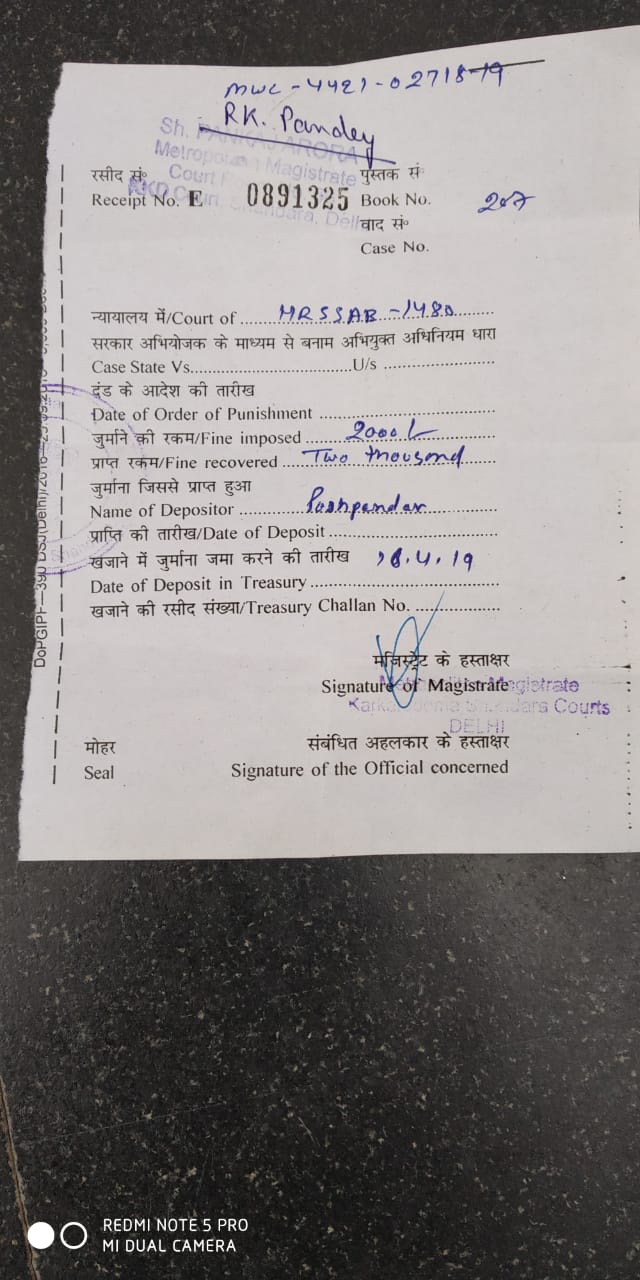 MWC-4421-02718-19
RK. Pandey
Sh. PANKAJ ARORA
Metropolitan Magistrate
Court
KKD Court, Shahdara, Delhi
रसीद सं० पुस्तक सं०
Receipt No. E 0891325 Book No. 207
वाद सं०
Case No.
न्यायालय में/Court of HR55AB-1480
सरकार अभियोजक के माध्यम से बनाम अभियुक्त अधिनियम धारा
Case State Vs. U/s
दंड के आदेश की तारीख
Date of Order of Punishment
जुर्माने की रकम/Fine imposed 2000/-
प्राप्त रकम/Fine recovered Two thousand
जुर्माना जिससे प्राप्त हुआ
Name of Depositor
प्राप्ति की तारीख/Date of Deposit
खजाने में जुर्माना जमा करने की तारीख 18.4.19
Date of Deposit in Treasury
खजाने की रसीद संख्या/Treasury Challan No.
मजिस्ट्रेट के हस्ताक्षर
Signature of Magistrate
Metropolitan Magistrate
Karkardooma Shahdara Courts
DELHI
मोहर संबंधित अहलकार के हस्ताक्षर
Seal Signature of the Official concerned
REDMI NOTE 5 PRO
MI DUAL CAMERA